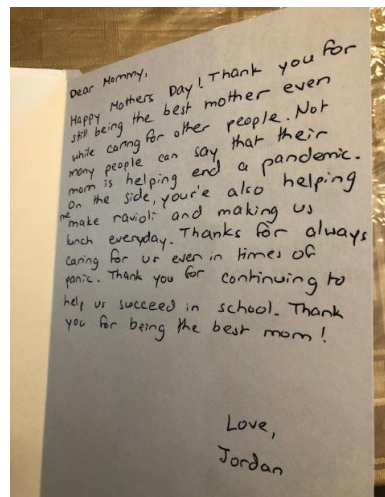 Dear Mommy,
Happy Mothers Day! Thank you for
still being the best mother even
while caring for other people. Not
many people can say that their
mom is helping end a pandemic.
On the side, your'e also helping
me make ravioli and making us
lunch everyday. Thanks for always
caring for us even in times of
panic. Thank you for continuing to
help us succeed in school. Thank
you for being the best mom!
Love,
Jordan